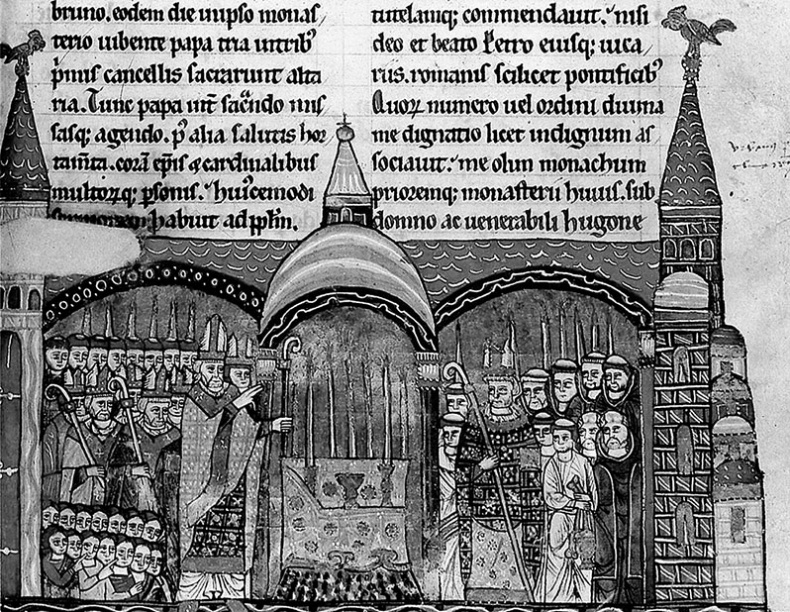 bruno. eodem die in ipso monas
terio iubente papa tria in tribꝰ
p̄mis cancellis sacrarunt alta
ria. Tunc papa int̄ sac̄ndo mis
sasq; agendo. p̄ alia salutis hor
tam̄ta. corā ep̄is ⁊ cardinalibus
multorꝫq; p̄sonis. huiꝰcemodi
habuit ad pp̄lm.
tutelamq; commendauit. nisi
deo et beato petro eiusq; uica
riis. romanis scilicet pontificibꝰ
Quoꝝ numero uel ordini diuina
me dignatio licet indignum as
sociauit. me olim monachum
prioremq; monasterii huius. sub
domno ac uenerabili hugone